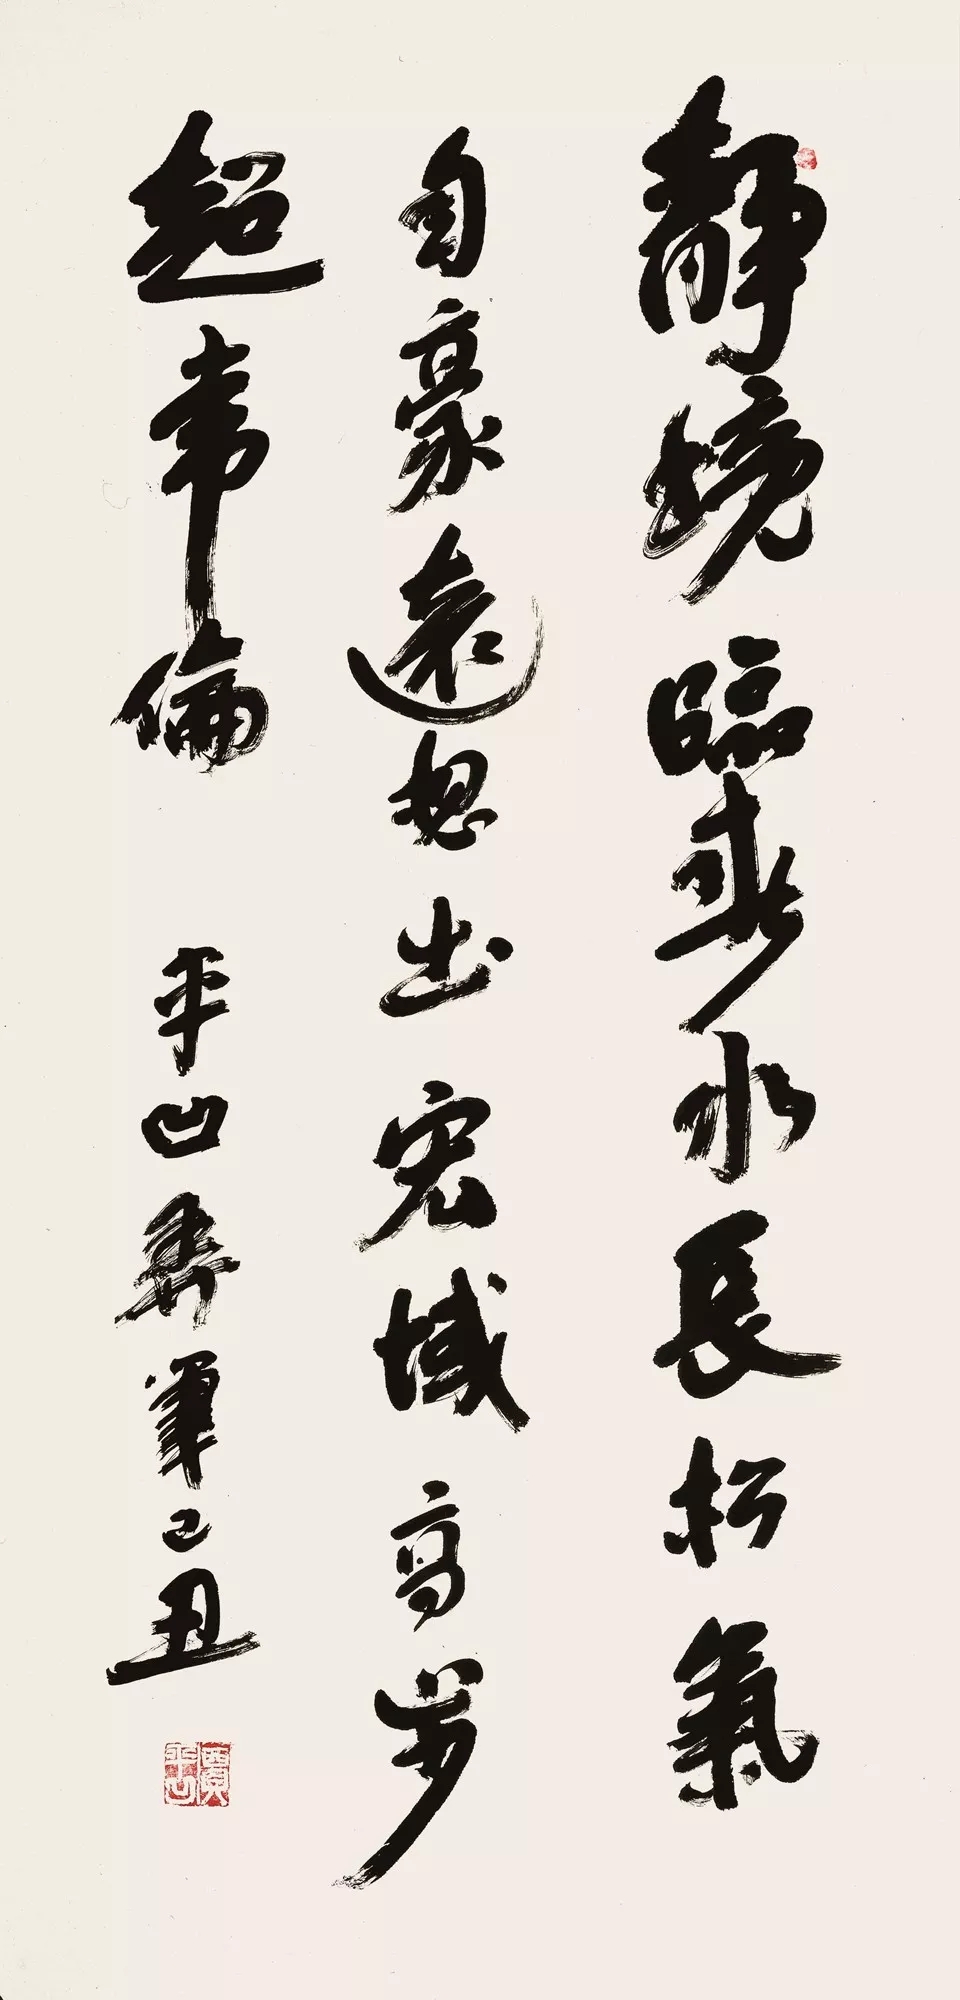 靜境臨水長松氣
自豪遠想出宏域高步
超常倫 平凹筆己丑
賈平凹